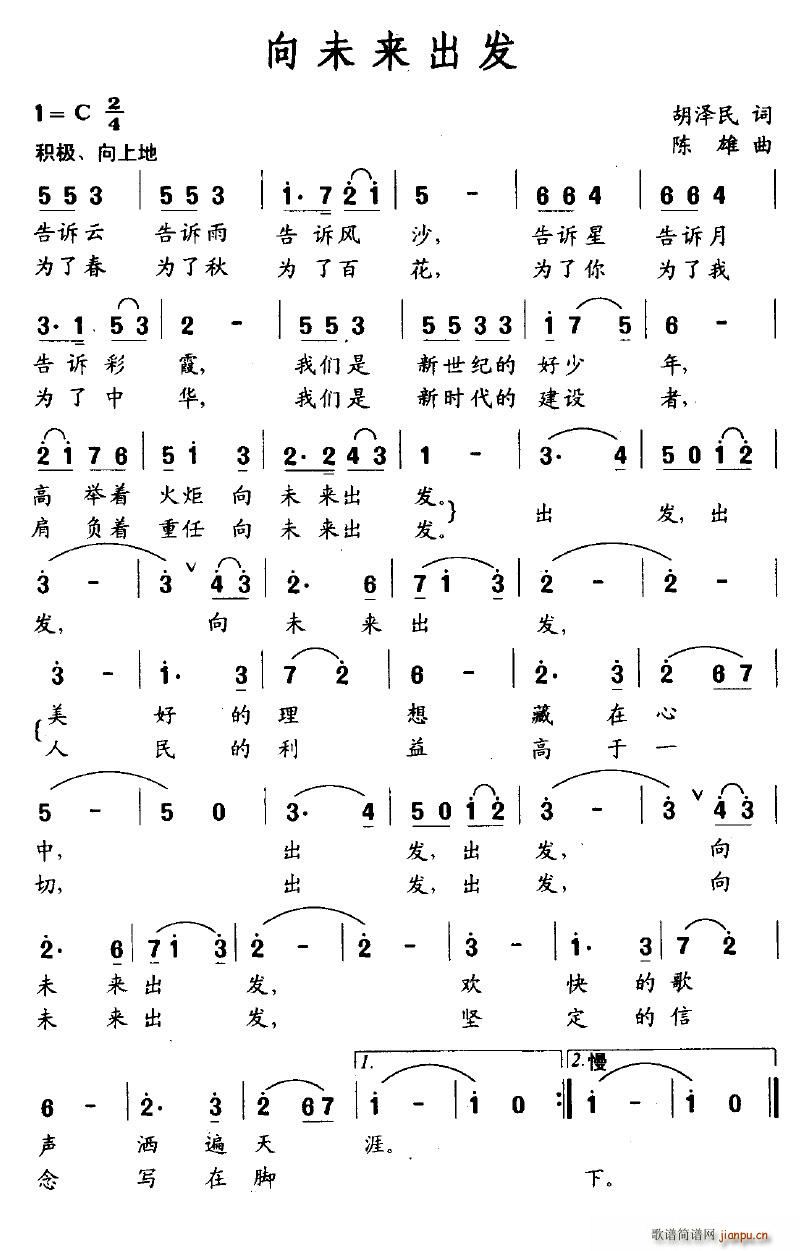 向未来出发
1=C 2/4
胡泽民 词
积极、向上地
陈 雄 曲
5 5 3 | 5 5 3 | 1· 7 2 1 | 5 - | 6 6 4 | 6 6 4 |
告诉云 告诉雨 告 诉风 沙, 告诉星 告诉月
为了春 为了秋 为 了百 花, 为了你 为了我
3· 1 5 3 | 2 - | 5 5 3 | 5 5 3 3 | 1 7 5 | 6 - |
告 诉 彩 霞, 我们是 新世纪的 好少 年,
为 了 中 华, 我们是 新时代的 建设 者,
2 1 7 6 | 5 1 3 | 2· 2 4 3 | 1 - | 3· 4 | 5 0 1 2 |
高 举着 火炬 向 未 来出 发。 出 发, 出
肩 负着 重任 向 未 来出 发。
3 - | 3 ∨ 4 3 | 2· 6 | 7 1 3 | 2 - | 2 - |
发, 向 未 来 出 发,
3 - | 1· 3 | 7 2 | 6 - | 2· 3 | 2 6 7 |
美 好 的 理 想 藏 在 心
人 民 的 利 益 高 于 一
5 - | 5 0 | 3· 4 | 5 0 1 2 | 3 - | 3 ∨ 4 3 |
中, 出 发, 出 发, 向
切, 出 发, 出 发, 向
2· 6 | 7 1 3 | 2 - | 2 - | 3 - | 1· 3 | 7 2 |
未 来 出 发, 欢 快 的 歌
未 来 出 发, 坚 定 的 信
1. 2.慢
6 - | 2· 3 | 2 6 7 | 1 - | 1 0 :‖ 1 - | 1 0 ‖
声 洒 遍 天 涯。
念 写 在 脚 下。
歌谱简谱网 jianpu.cn